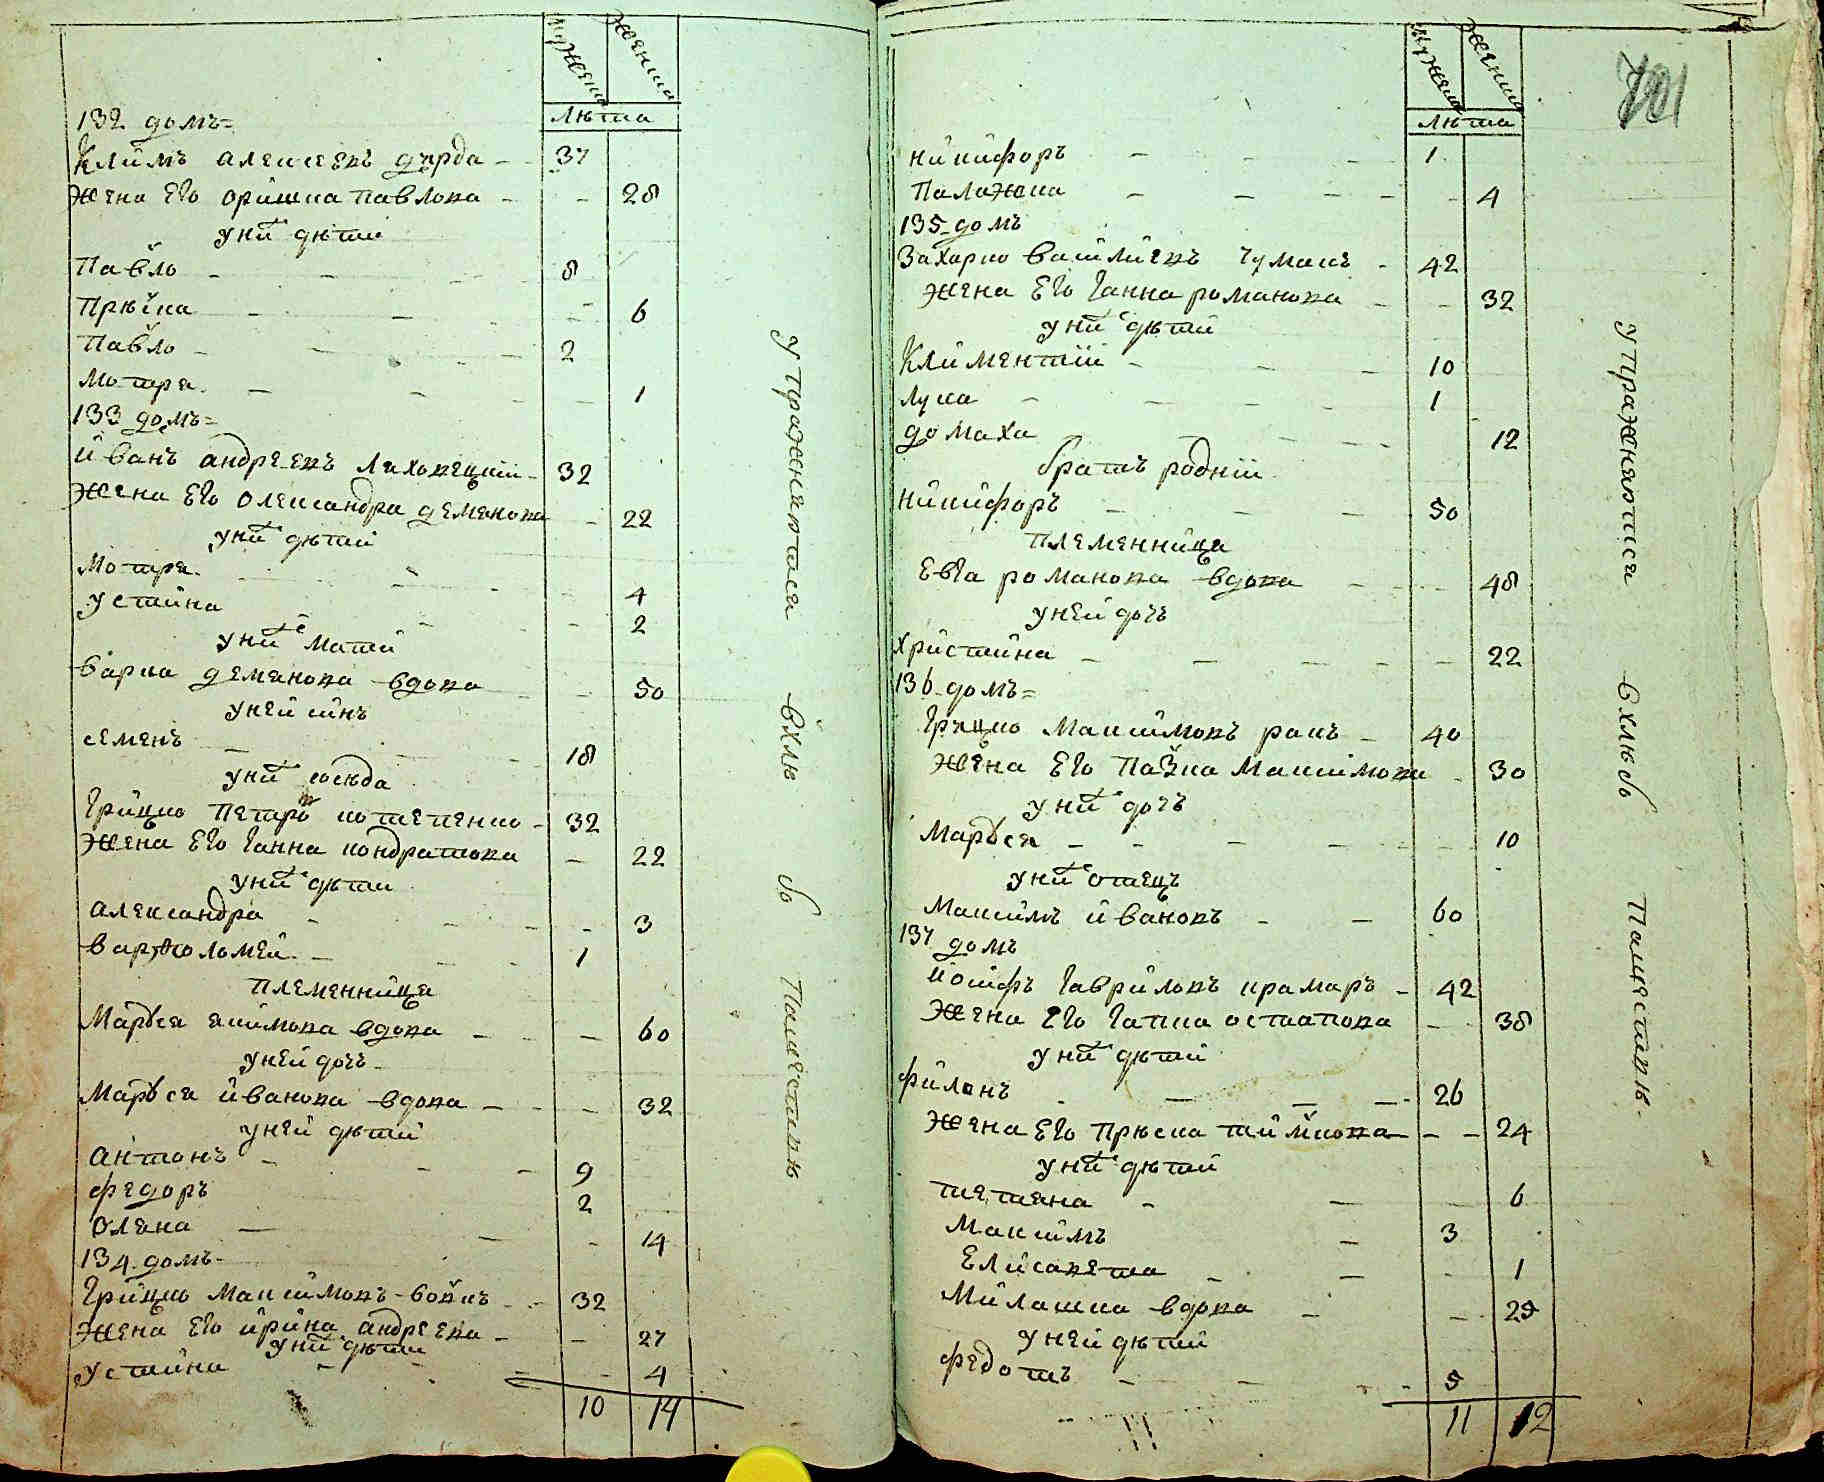 Мужеска Женска
Лѣта
132 домъ=
Климъ Алексеевъ дърда 37
жена Его оришка Павлова 28
у них дѣтй
Павло 8
Прѣска 6
Павло 2
Мотря 1
133 домъ=
йванъ андреевъ Лиховецкий 32
жена Его Олександра деменова 22
у них дѣтй
Мотря 4
устина 2
у них мати
Варка деменова вдова 50
у ней синъ
семенъ 18
у них сосѣда
Грицко Петровъ котеленко 32
жена Его Ганна кондратова 22
у них дѣти
Александра 3
Варфоломей 1
Племенница
Маруся акимова вдова 60
у ней дочъ
Маруся иванова вдова 32
у ней дѣтй
антонъ 9
федоръ 2
Олена 14
134 домъ
Грицко Максимовъ вовкъ 32
жена Его ирина андреева 27
у них дѣтй
устина 4
10 14
упражняются в хлѣбопашествѣ
Мужеска Женска
Лѣта
никифоръ 1
Палажка 4
135 домъ
Захарко Василиевъ чумакъ 42
жена Его Ганна романова 32
у них дѣтй
Климентий 10
Лука 1
домаха 12
братъ родний
никифоръ 50
Племенница
Евга романова вдова 48
у ней дочъ
Христина 22
136 домъ=
Грицко Максимовъ ракъ 40
жена Его Пазка Максимова 30
у них дочъ
Маруся 10
у них отецъ
Максимъ ивановъ 60
137 домъ
йосифъ Гавриловъ крамаръ 42
жена Его Гапка остапова 38
у них дѣтй
филонъ 26
жена Его Прѣска тимкова 24
у них дѣтй
тетяна 6
Максимъ 3
Елисавета 1
Милашка вдова 25
у ней дѣтй
федотъ 5
11 12
упражняются в хлѣбопашествѣ